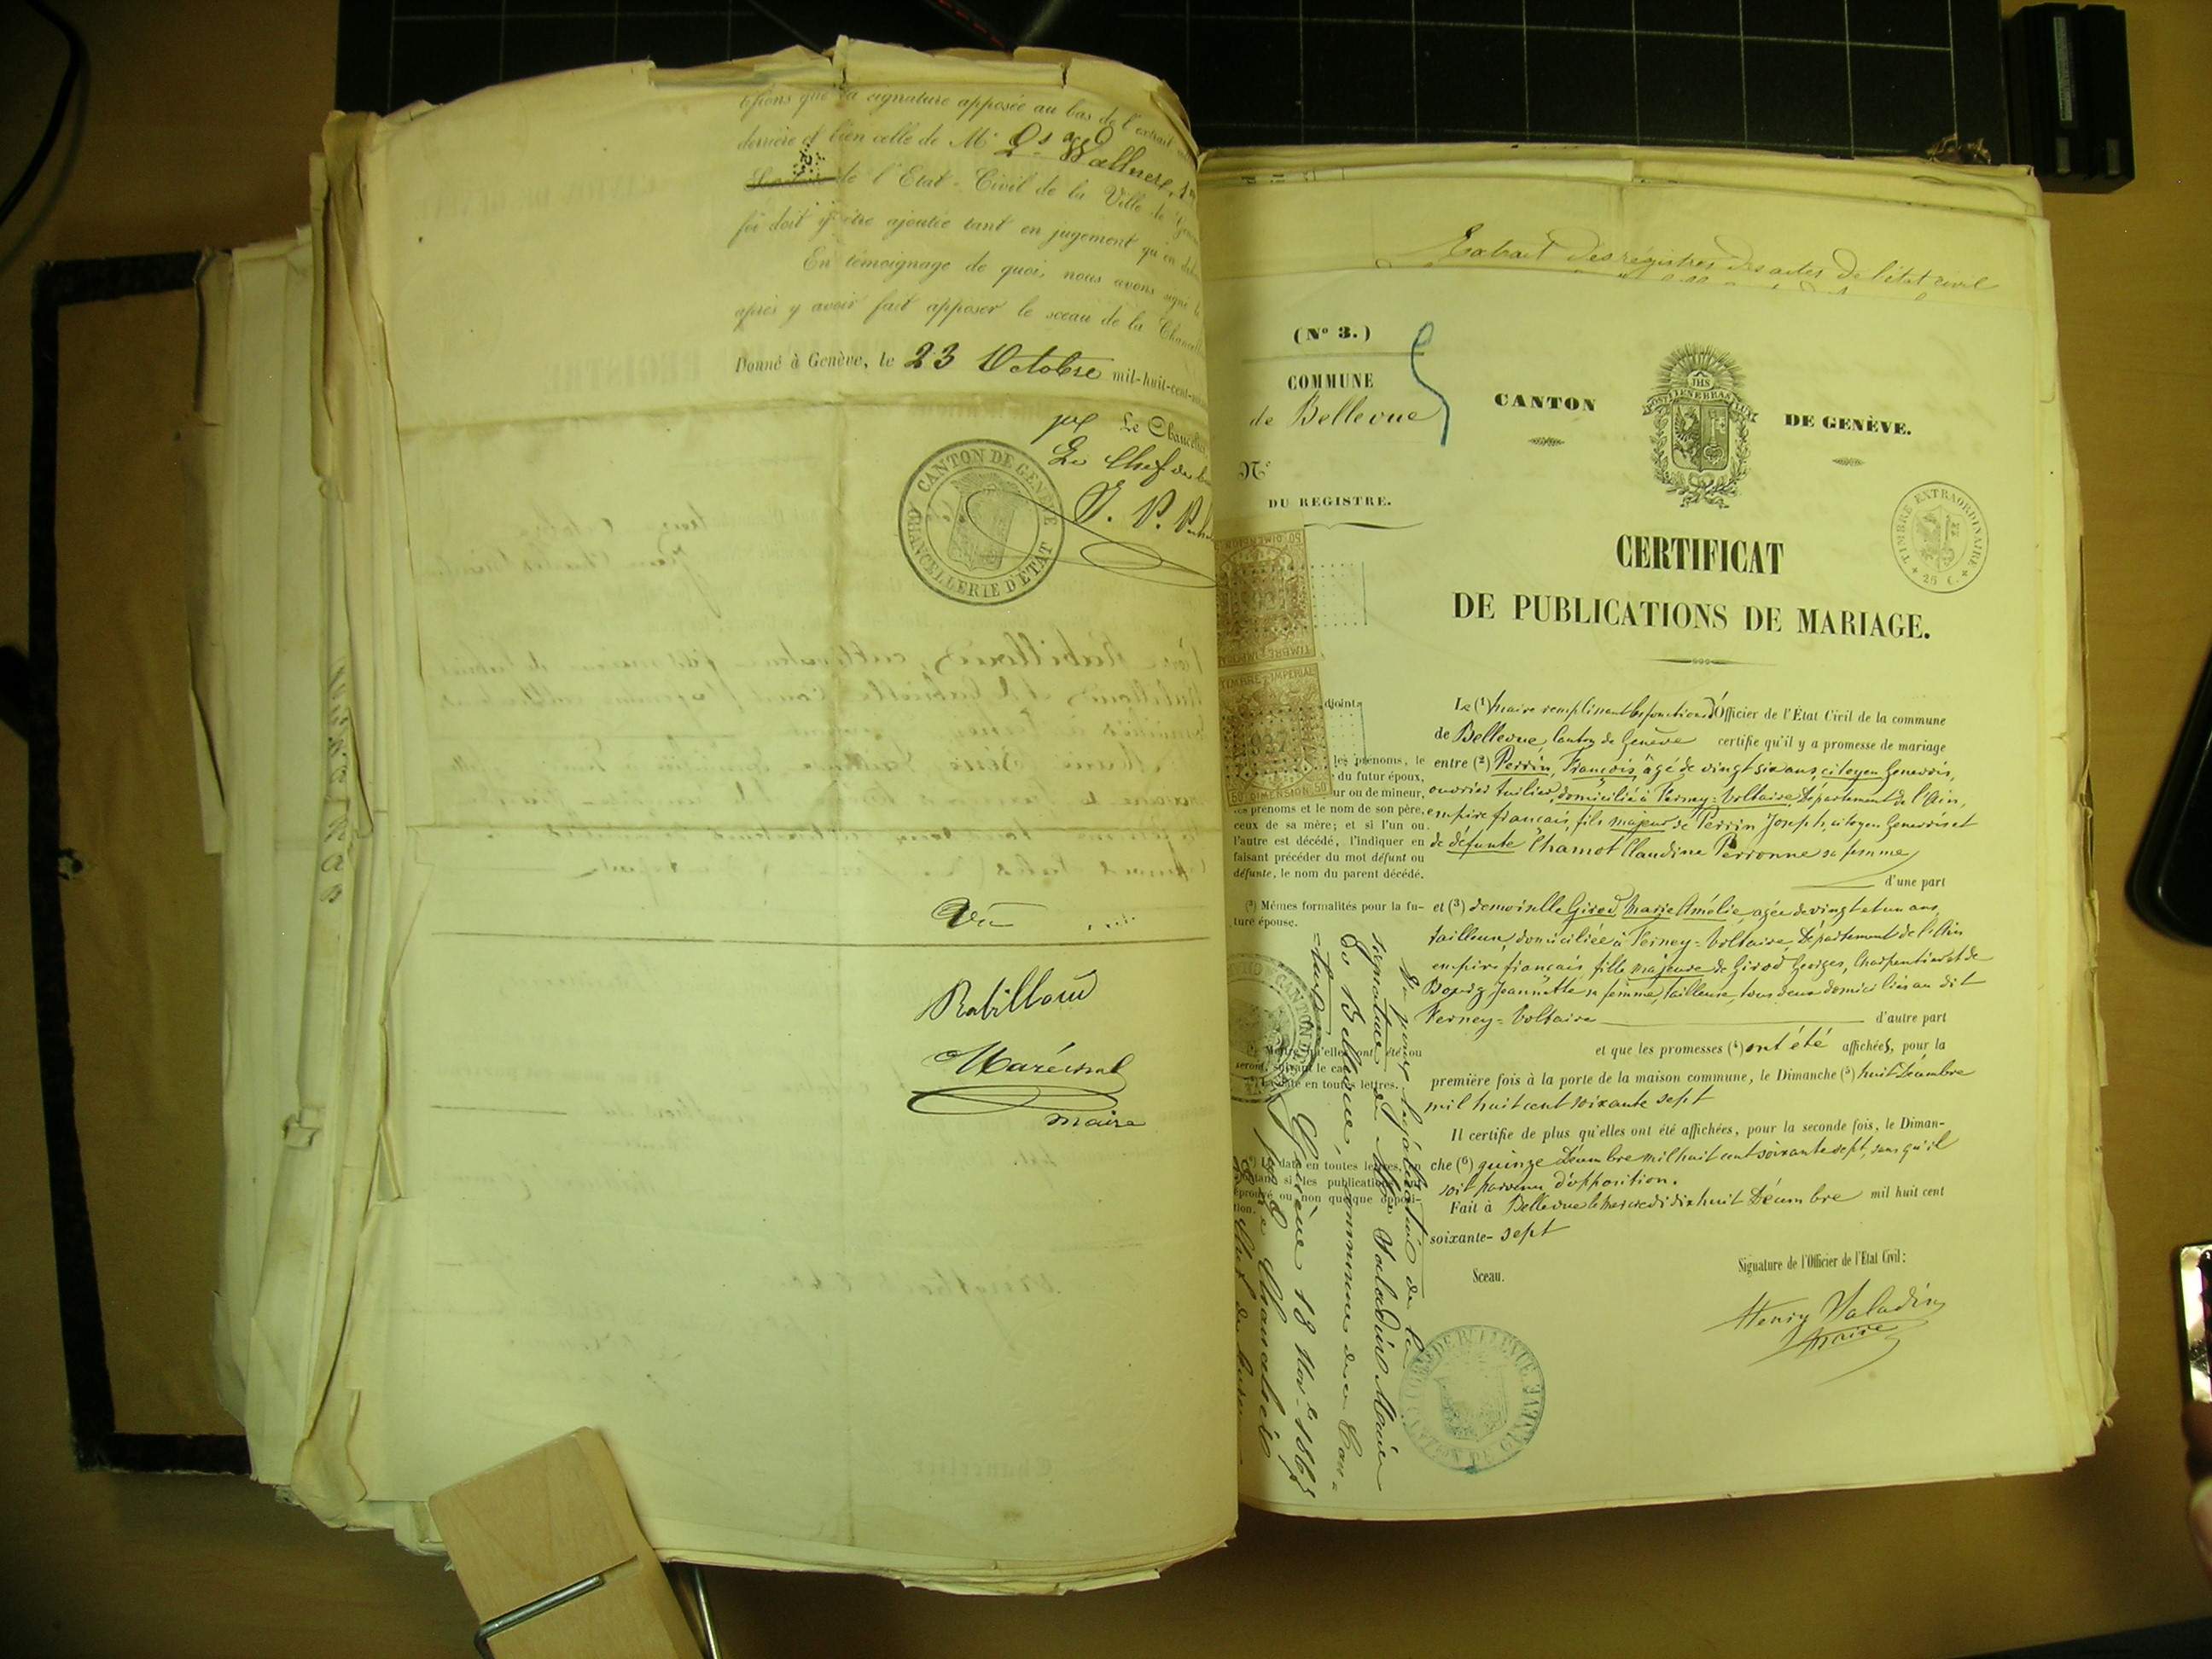 tifions que la signature apposée au bas de l'extrait
derrière est bien celle de Mr Ls Wallner
de l'Etat-Civil de la Ville de Genève
foi doit y être ajoutée tant en jugement qu'en
En témoignage de quoi, nous avons signé
après y avoir fait apposer le sceau de la
Donné à Genève, le 23 Octobre mil-huit-cent-
Le
Le Chef de
J. P.
CANTON DE GENÈVE
CHANCELLERIE D'ETAT
Vu
Rabilloud
Maréchal
maire
Extrait des régistres des actes de l'état civil
(No 3.)
COMMUNE
de Bellevue
No
DU REGISTRE.
CANTON
DE GENÈVE.
IHS
POST TENEBRAS LUX
TIMBRE EXTRAORDINAIRE
25 C.
CERTIFICAT
DE PUBLICATIONS DE MARIAGE.
TIMBRE IMPERIAL
50 DIMENSION 50
Le (1) Maire remplissant les fonctions d'Officier de l'État Civil de la commune
de Bellevue, Canton de Genève certifie qu'il y a promesse de mariage
entre (2) Perrin, François, âgé de vingt six ans, citoyen Genevois,
ouvrier tuilier, domicilié à Ferney=Voltaire, Département de l'Ain,
empire français, fils majeur de Perrin Joseph, citoyen Genevois et
de défunte Chamot Claudine Perronne sa femme
d'une part
et (3) demoiselle Girod, Marie Amélie, agée de vingt et un ans,
tailleuse, domiciliée à Ferney=Voltaire, Département de l'Ain
empire français, fille majeure de Girod Georges, Charpentier et de
Jeannette sa femme, tailleuse, tous deux domiciliés au dit
Ferney=Voltaire d'autre part
et que les promesses (4) ont été affichées, pour la
première fois à la porte de la maison commune, le Dimanche (5) huit Décembre
mil huit cent soixante sept
Il certifie de plus qu'elles ont été affichées, pour la seconde fois, le Diman-
che (6) quinze Décembre mil huit cent soixante sept, sans qu'il
soit parvenu d'opposition.
Fait à Bellevue le mercredi dix huit Décembre mil huit cent
soixante-sept
Sceau.
Signature de l'Officier de l'État Civil:
Henry Valadin
Maire
djoint.
les prénoms, le
du futur époux,
ur ou de mineur,
les prénoms et le nom de son père,
ceux de sa mère; et si l'un ou
l'autre est décédé, l'indiquer en
faisant précéder du mot défunt ou
défunte, le nom du parent décédé.
(3) Mêmes formalités pour la fu-
ture épouse.
qu'elles ont été ou
seront, suivant le cas.
date en toutes lettres.
date en toutes lettres, en
si les publications ont
éprouvé ou non quelque opposi-
tion.
Vu pour légalisation de la
signature de Mr Valadin Maire
de Bellevue, commune du Can=
=ton
Genève 18 1867
pr le Chancelier
Chef de bureau